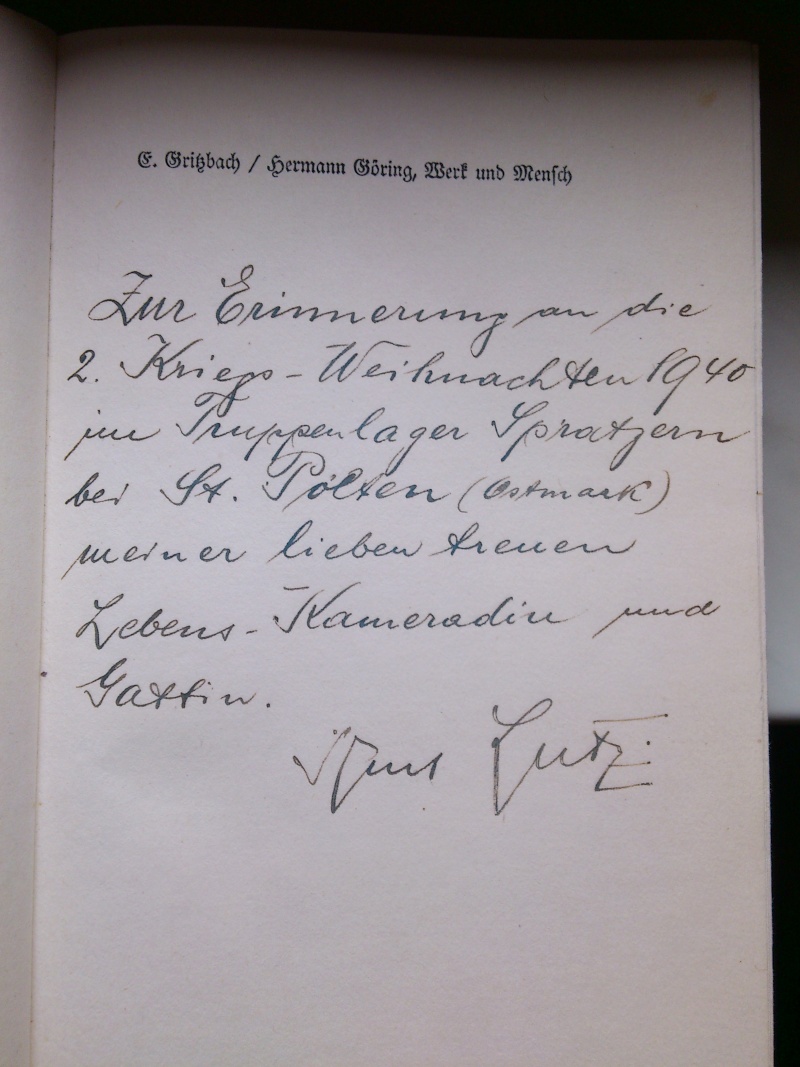 E. Gritzbach / Hermann Göring, Werk und Mensch
Zur Erinnerung an die
2. Kriegs-Weihnachten 1940
im Truppenlager Spratzern
bei St. Pölten (Ostmark)
meiner lieben treuen
Lebens-Kameradin und
Gattin.
Lutz